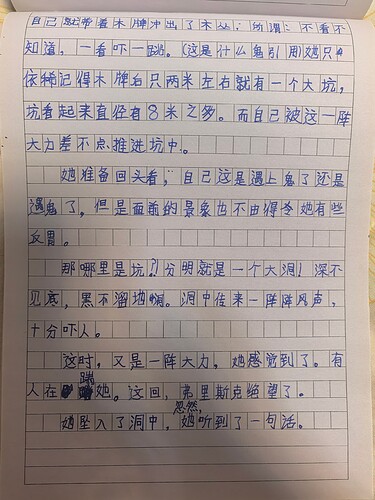 自己就带着木牌冲出了木丛；所谓：不看不
知道，一看吓一跳。（这是什么鬼引用）她只
依稀记得木牌后只两米左右就有一个大坑，
坑看起来直径有8米之多。而自己被这一阵
大力差不点推进坑中。
她准备回头看，自己这是遇上鬼了还是
遇鬼了，但是面前的景象也不由得令她有些
反胃。
那哪里是坑？分明就是一个大洞！深不
见底，黑不溜地。洞中传来一阵阵风声，
十分吓人。
这时，又是一阵大力，她感觉到了。有
人在踹她。这回，弗里斯克绝望了。
她坠入了洞中，忽然，她听到了一句话。